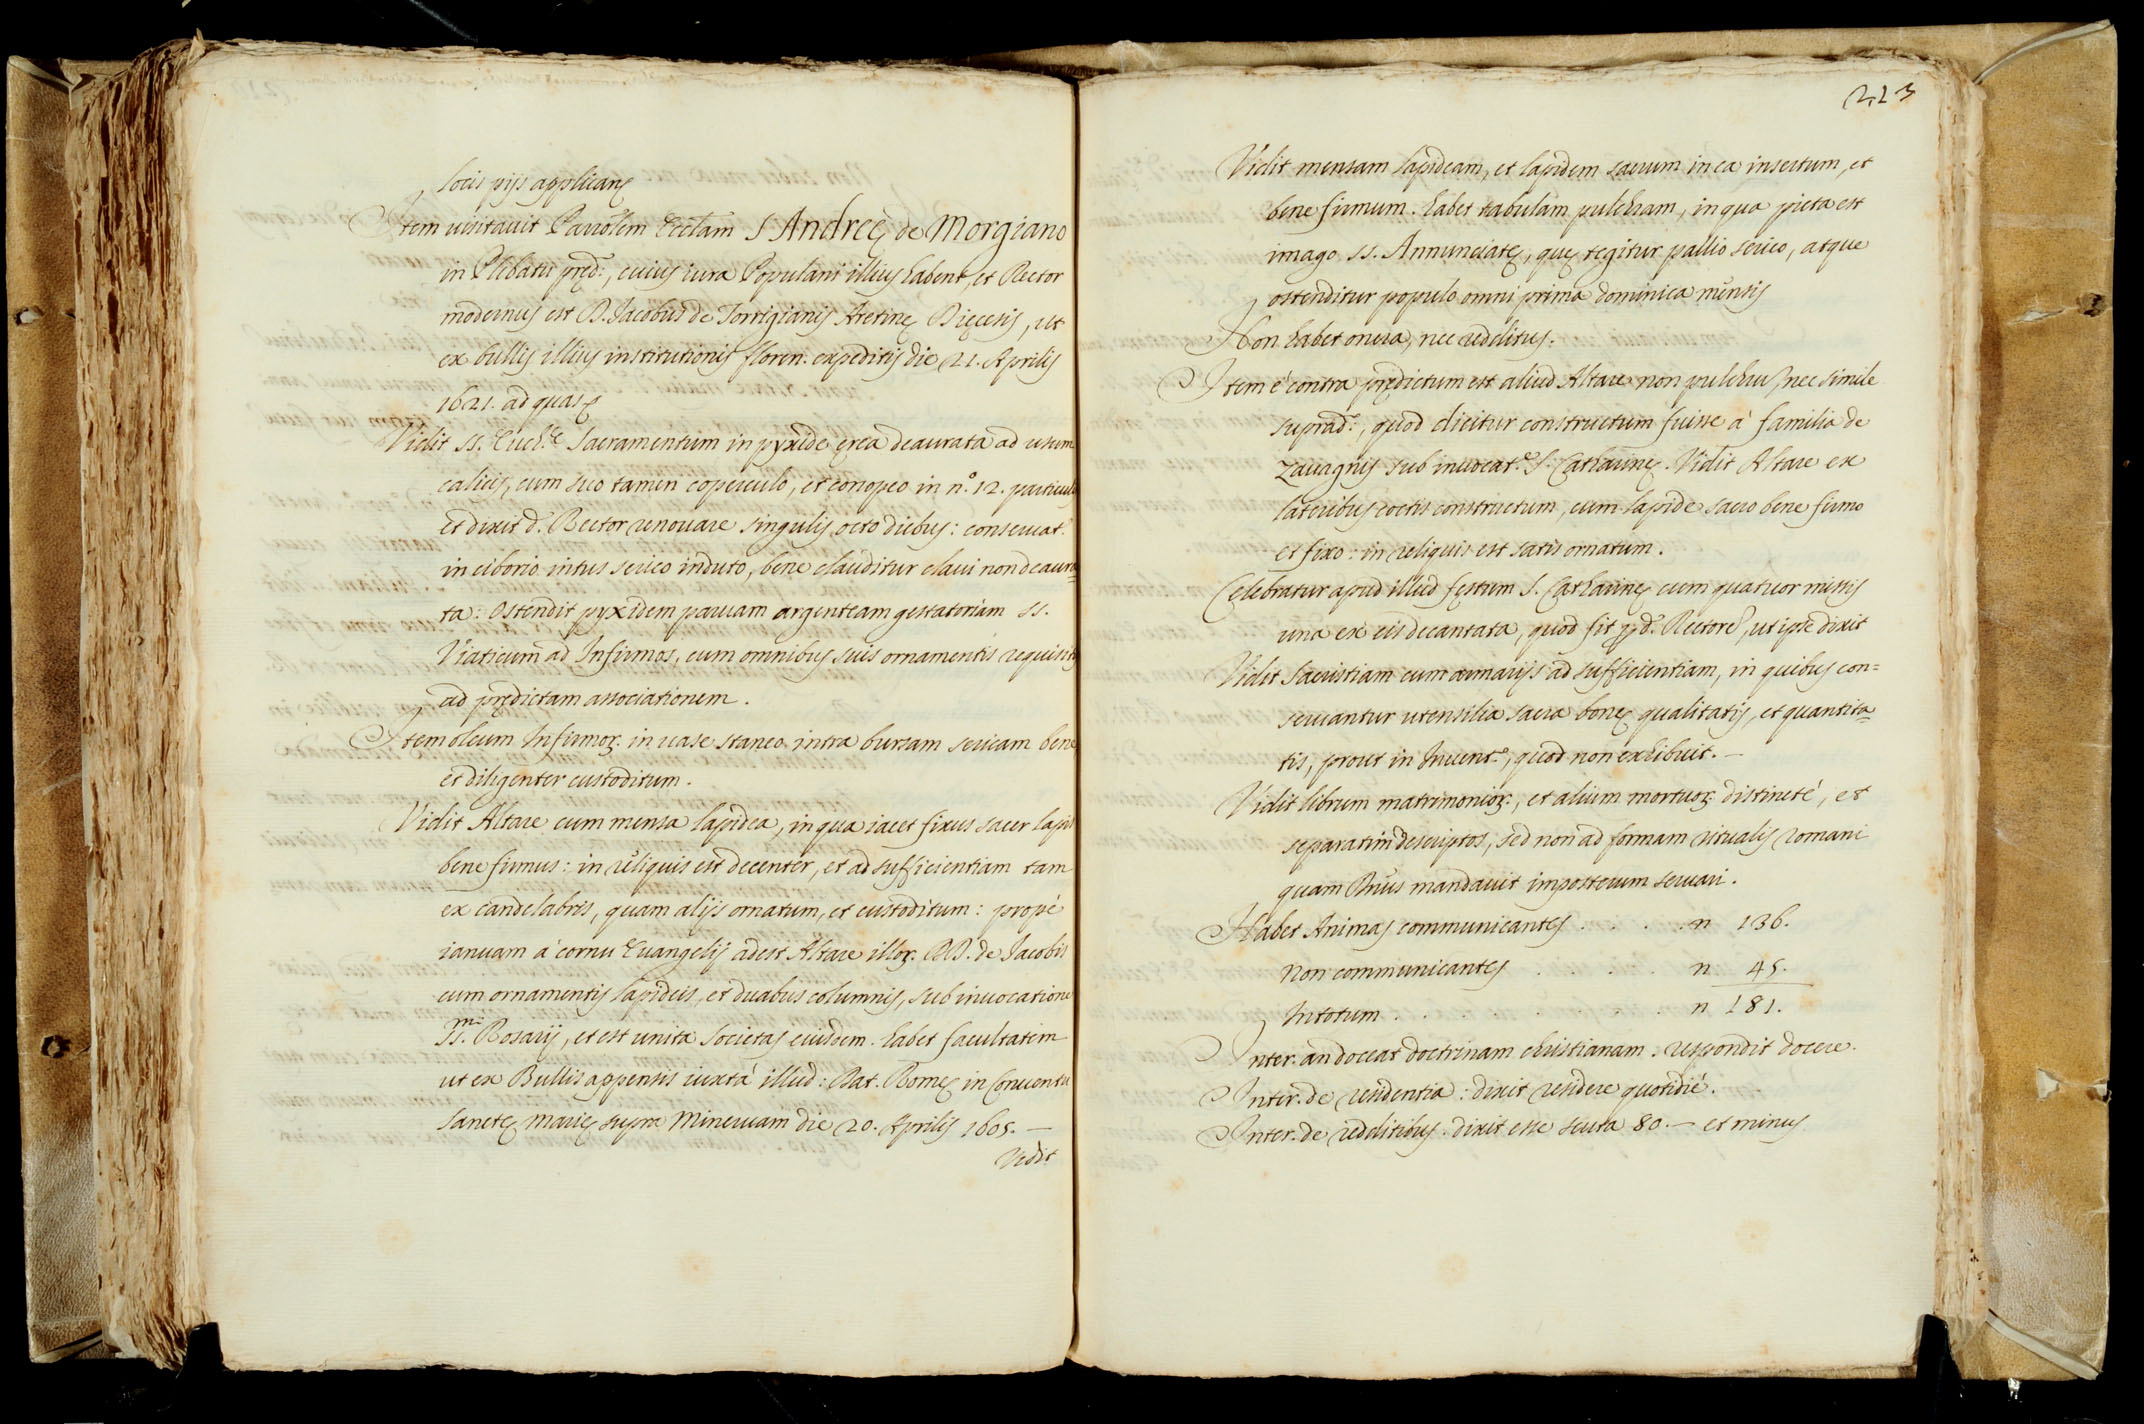 locis pijs applicanę
Item uisitauit Parrōlem Ecclam S Andreę de Morgiano
in Plebatu pręd:, cuius iura Populani illius habent, et Rector
modernus est D. Jacobus de Torrigianis Aretinę Dięcesis, ut
ex bullis illius institutionis floren. expeditis die 21. Aprilis
1621. ad quas ę
Vidit ss. Euch.ę Sacramentum in pyxide ęrea deaurata ad usum
calicis, cum suo tamen coperculo, et conopeo in n.º 12. particul
et dixit d. Rector renouare singulis octo diebus: conseruat.
in ciborio intus serico induto, bene clauditur claui non deaura=
ta: Ostendit pyxidem paruam argenteam gestatoriam ss.
Viaticum ad Infirmos, cum omnibus suis ornamentis requisit
ad prędictam associationem.
Item oleum Infirmoꝝ. in uase staneo intra bursam sericam bene
et diligenter custoditum.
Vidit Altare cum mensa lapidea, in qua iacet fixus sacer lapis
bene firmus: in reliquis est decenter, et ad sufficientiam tam
ex candelabris, quam alijs ornatum, et custoditum: propè
ianuam à cornu Euangelij adest Altare illoꝝ. DD. de Jacobis
cum ornamentis lapideis, et duabus columnis, sub inuocatione
SS.mi Rosarij, et est unita societas eiusdem. habet facultatem
ut ex Bullis appensis iuxtà illud: Dat. Romę in Conuentu
Sanctę Marię supra Mineruam die 20. Aprilis 1605. —
Vidit
223
Vidit mensam lapideam, et lapidem sacrum in ea insertum, et
bene firmum. habet tabulam pulchram, in qua picta est
imago ss. Annunciatę, quę tegitur pallio serico, atque
ostenditur populo omni prima dominica mensis
Non habet onera, nec redditus.
Item è contra prędictum est aliud Altare non pulchrū, nec simile
suprad:, quod dicitur constructum fuisse à familia de
Zauagnis sub inuocat.e S. Catharinę. Vidit Altare ex
lateribus coctis constructum, cum lapide sacro bene firmo
et fixo: in reliquis est satis ornatum.
Celebratur apud illud fęstum S. Catharinę cum quatuor missis
una ex eis decantata, quod fit ꝑ d. Rectorē, ut ipse dixit
Vidit Sacristiam cum armarijs ad sufficientiam, in quibus con=
seruantur utensilia sacra bonę qualitatis, et quantita=
tis, prout in Inuent.o, quod non exhibuit. —
Vidit librum matrimonioꝝ:, et alium mortuoꝝ: distinctè, et
separatim descriptos, sed non ad formam ritualis romani
quam Dnus mandauit imposterum seruari.
Habet Animas communicantes . . . . n 136.
Non communicantes . . . . n 45.
Intotum . . . . . . . n 181.
Inter. an doceat doctrinam christianam. respondit docere.
Inter. de residentia: dixit residere quotidiè.
Inter. de redditibus. dixit esse scuta 80. — et minus